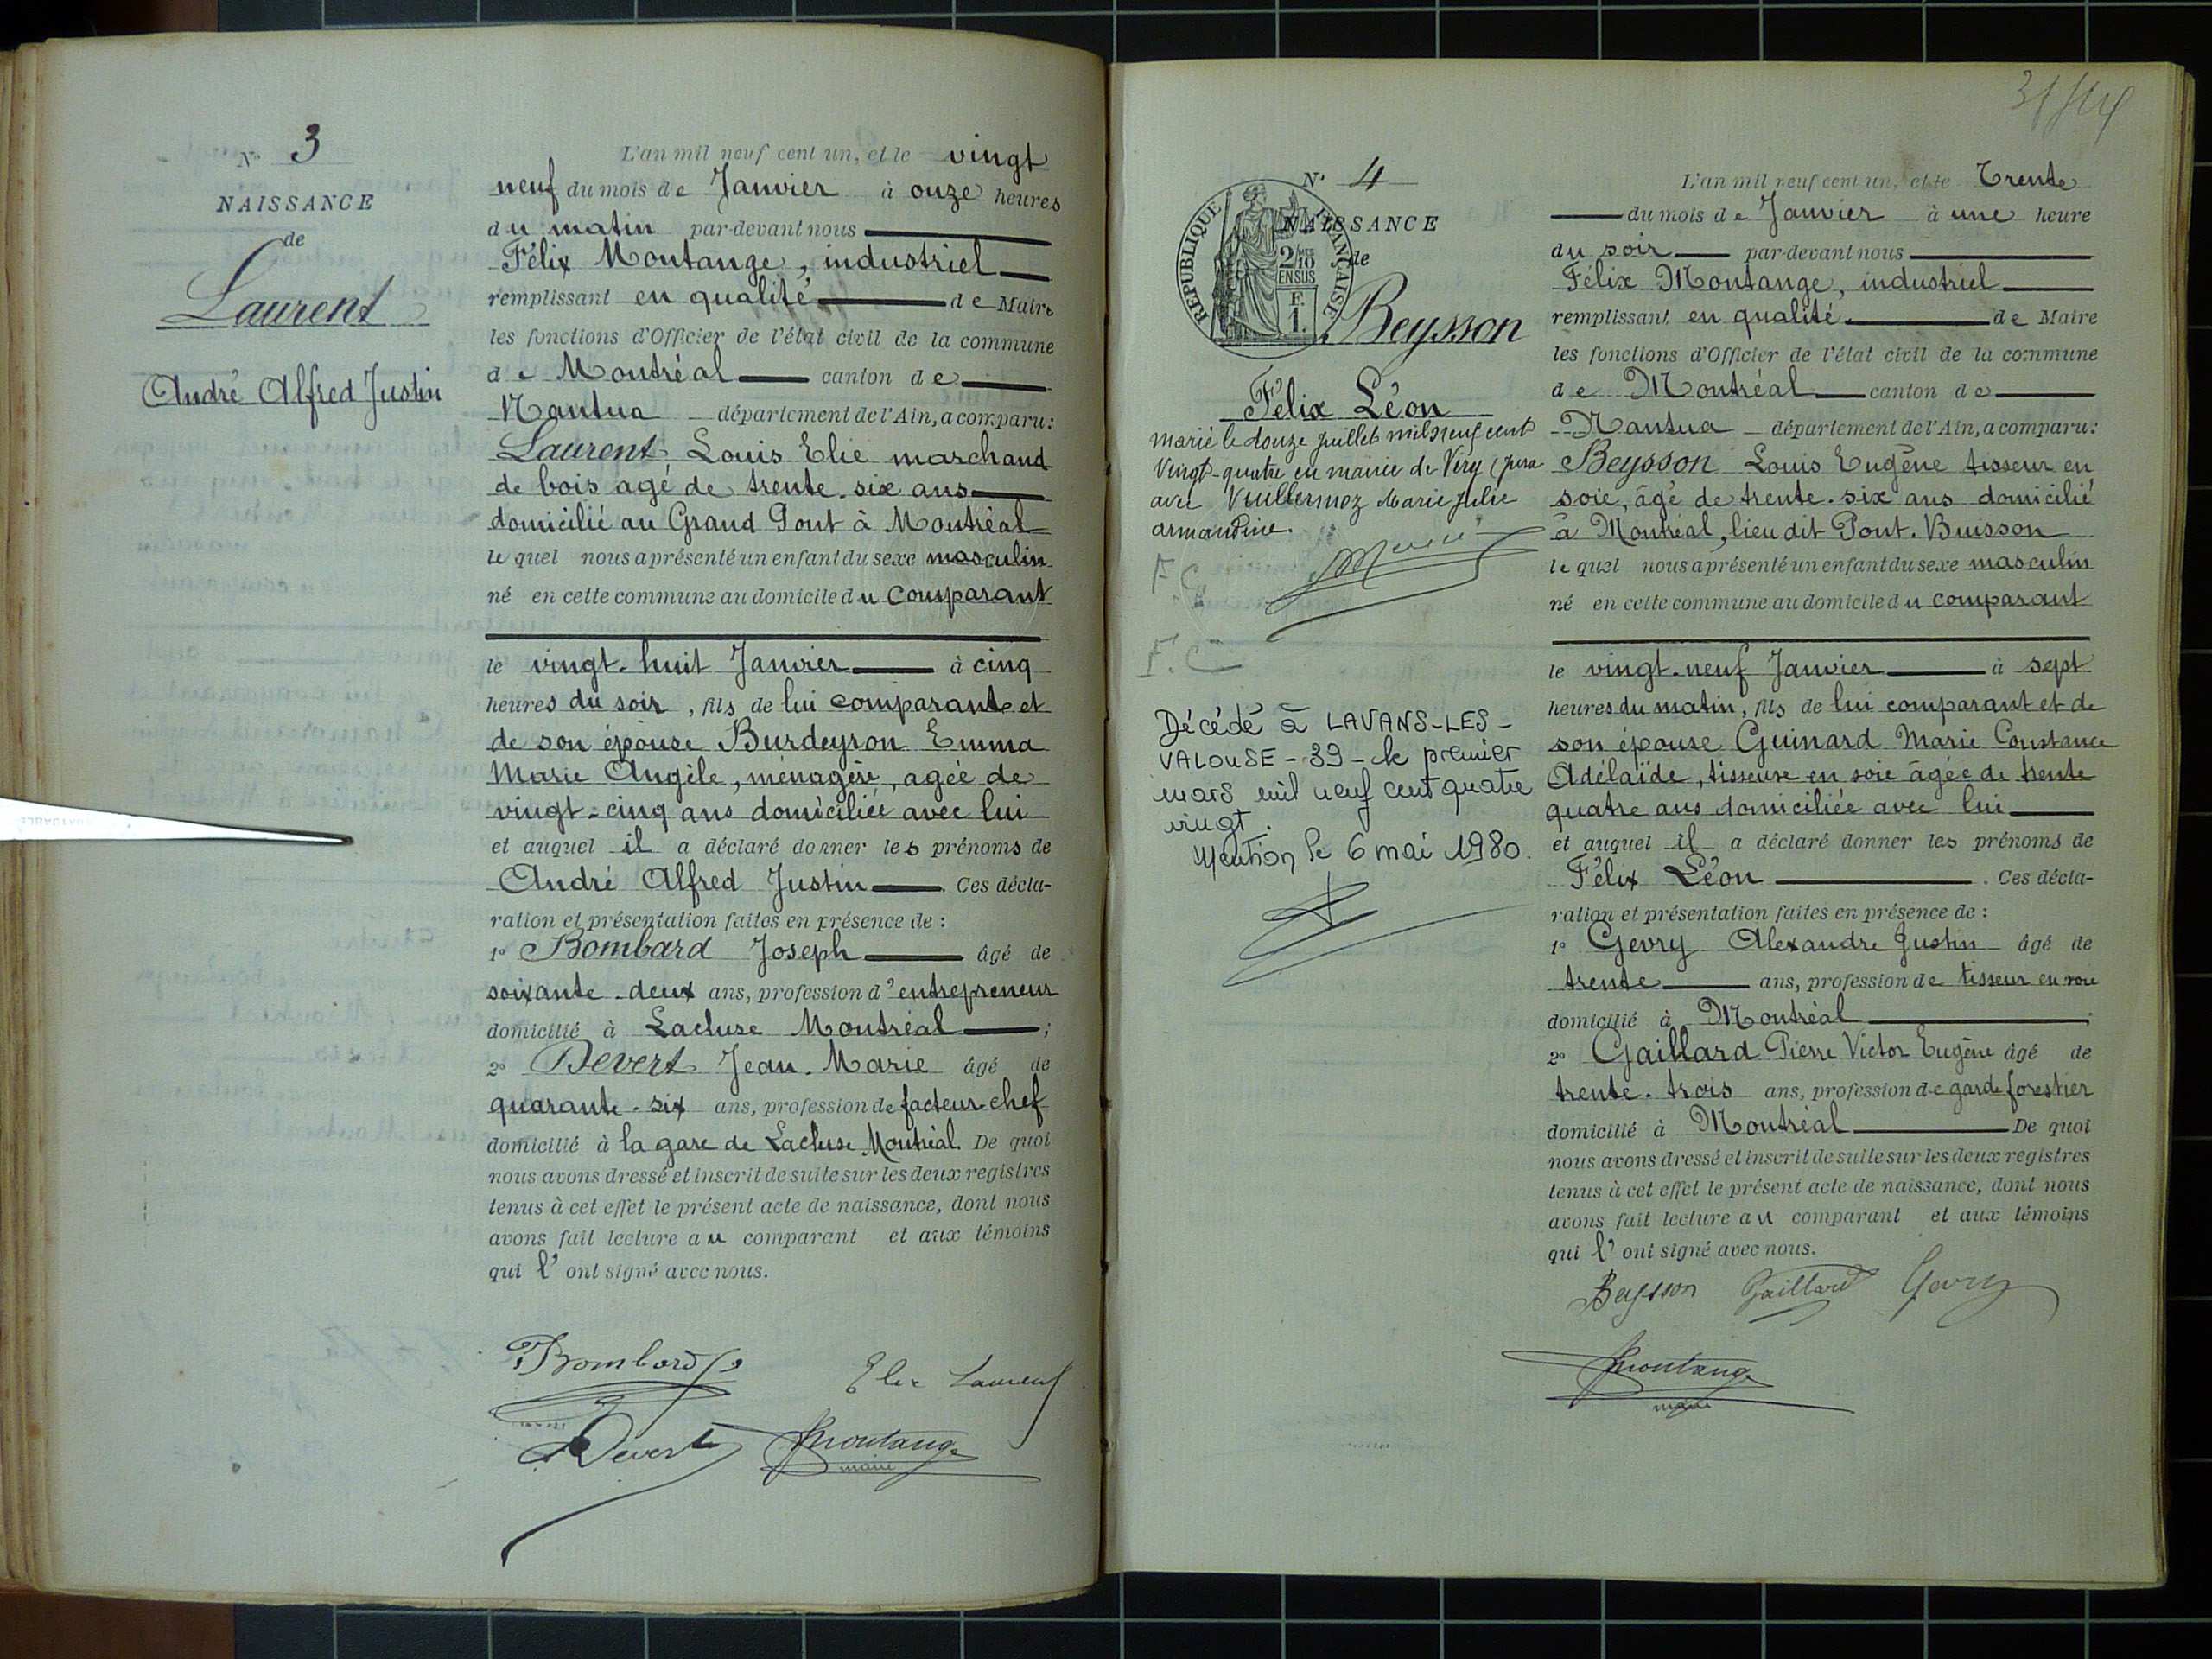 N° 3
NAISSANCE
de
Laurent
André Alfred Justin
L'an mil neuf cent un, et le vingt
neuf du mois de Janvier à onze heures
du matin par-devant nous
Félix Montange, industriel
remplissant en qualité de Maire
les fonctions d'Officier de l'état civil de la commune
de Montréal canton de
Nantua département de l'Ain, a comparu:
Laurent Louis Elie marchand
de bois agé de trente-six ans
domicilié au Grand Pont à Montréal
lequel nous a présenté un enfant du sexe masculin
né en cette commune au domicile du Comparant
le vingt-huit Janvier à cinq
heures du soir, fils de lui comparant et
de son épouse Burdeyron Emma
Marie Angèle, ménagère, agée de
vingt-cinq ans domiciliée avec lui
et auquel il a déclaré donner les prénoms de
André Alfred Justin. Ces décla-
ration et présentation faites en présence de :
1° Bombard Joseph âgé de
soixante-deux ans, profession d'entrepreneur
domicilié à Lacluse Montréal ;
2° Devert Jean-Marie âgé de
quarante-six ans, profession de facteur chef
domicilié à la gare de Lacluse Montréal. De quoi
nous avons dressé et inscrit de suite sur les deux registres
tenus à cet effet le présent acte de naissance, dont nous
avons fait lecture au comparant et aux témoins
qui l'ont signé avec nous.
Bombard
Elie Laurent
Devert
Montange
maire
N° 4
NAISSANCE
de
RÉPUBLIQUE FRANÇAISE
2/10
EN SUS
F.
1.
Beysson
Félix Léon
marié le douze juillet mil neuf cent
Vingt-quatre en mairie de Viry (Jura
avec Vuillermoz Marie Julie
armandine.
F.C
F.C
Décédé à LAVANS-LES-
VALOUSE - 39 - le premier
mars mil neuf cent quatre
vingt.
Mention le 6 mai 1980.
L'an mil neuf cent un, et le Trente
du mois de Janvier à une heure
du soir par-devant nous
Félix Montange, industriel
remplissant en qualité de Maire
les fonctions d'Officier de l'état civil de la commune
de Montréal canton de
Nantua département de l'Ain, a comparu:
Beysson Louis Eugène tisseur en
soie, âgé de trente-six ans domicilié
à Montréal, lieu dit Pont-Buisson
lequel nous a présenté un enfant du sexe masculin
né en cette commune au domicile du comparant
le vingt-neuf Janvier à sept
heures du matin, fils de lui comparant et de
son épouse Guinard Marie Constance
Adélaïde, tisseuse en soie âgée de trente
quatre ans domiciliée avec lui
et auquel il a déclaré donner les prénoms de
Félix Léon. Ces décla-
ration et présentation faites en présence de :
1° Gevry Alexandre Justin âgé de
trente ans, profession de tisseur en soie
domicilié à Montréal ;
2° Gaillard Pierre Victor Eugène âgé de
trente-trois ans, profession de garde forestier
domicilié à Montréal De quoi
nous avons dressé et inscrit de suite sur les deux registres
tenus à cet effet le présent acte de naissance, dont nous
avons fait lecture au comparant et aux témoins
qui l'ont signé avec nous.
Beysson Gaillard Gevry
Montange
maire